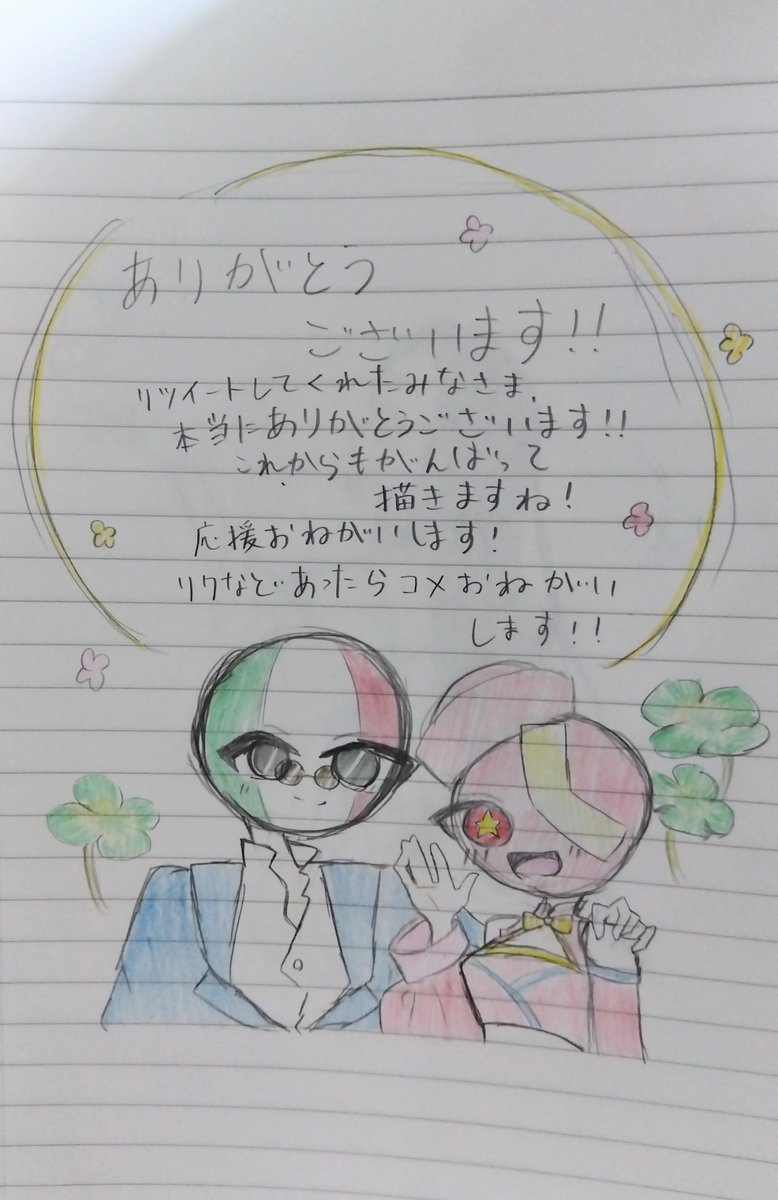 ありがとう
ございます!!
リツイートしてくれたみなさま、
本当にありがとうございます!!
これからもがんばって
描きますね!
応援おねがいします!
リクなどあったらコメおねがい
します!!